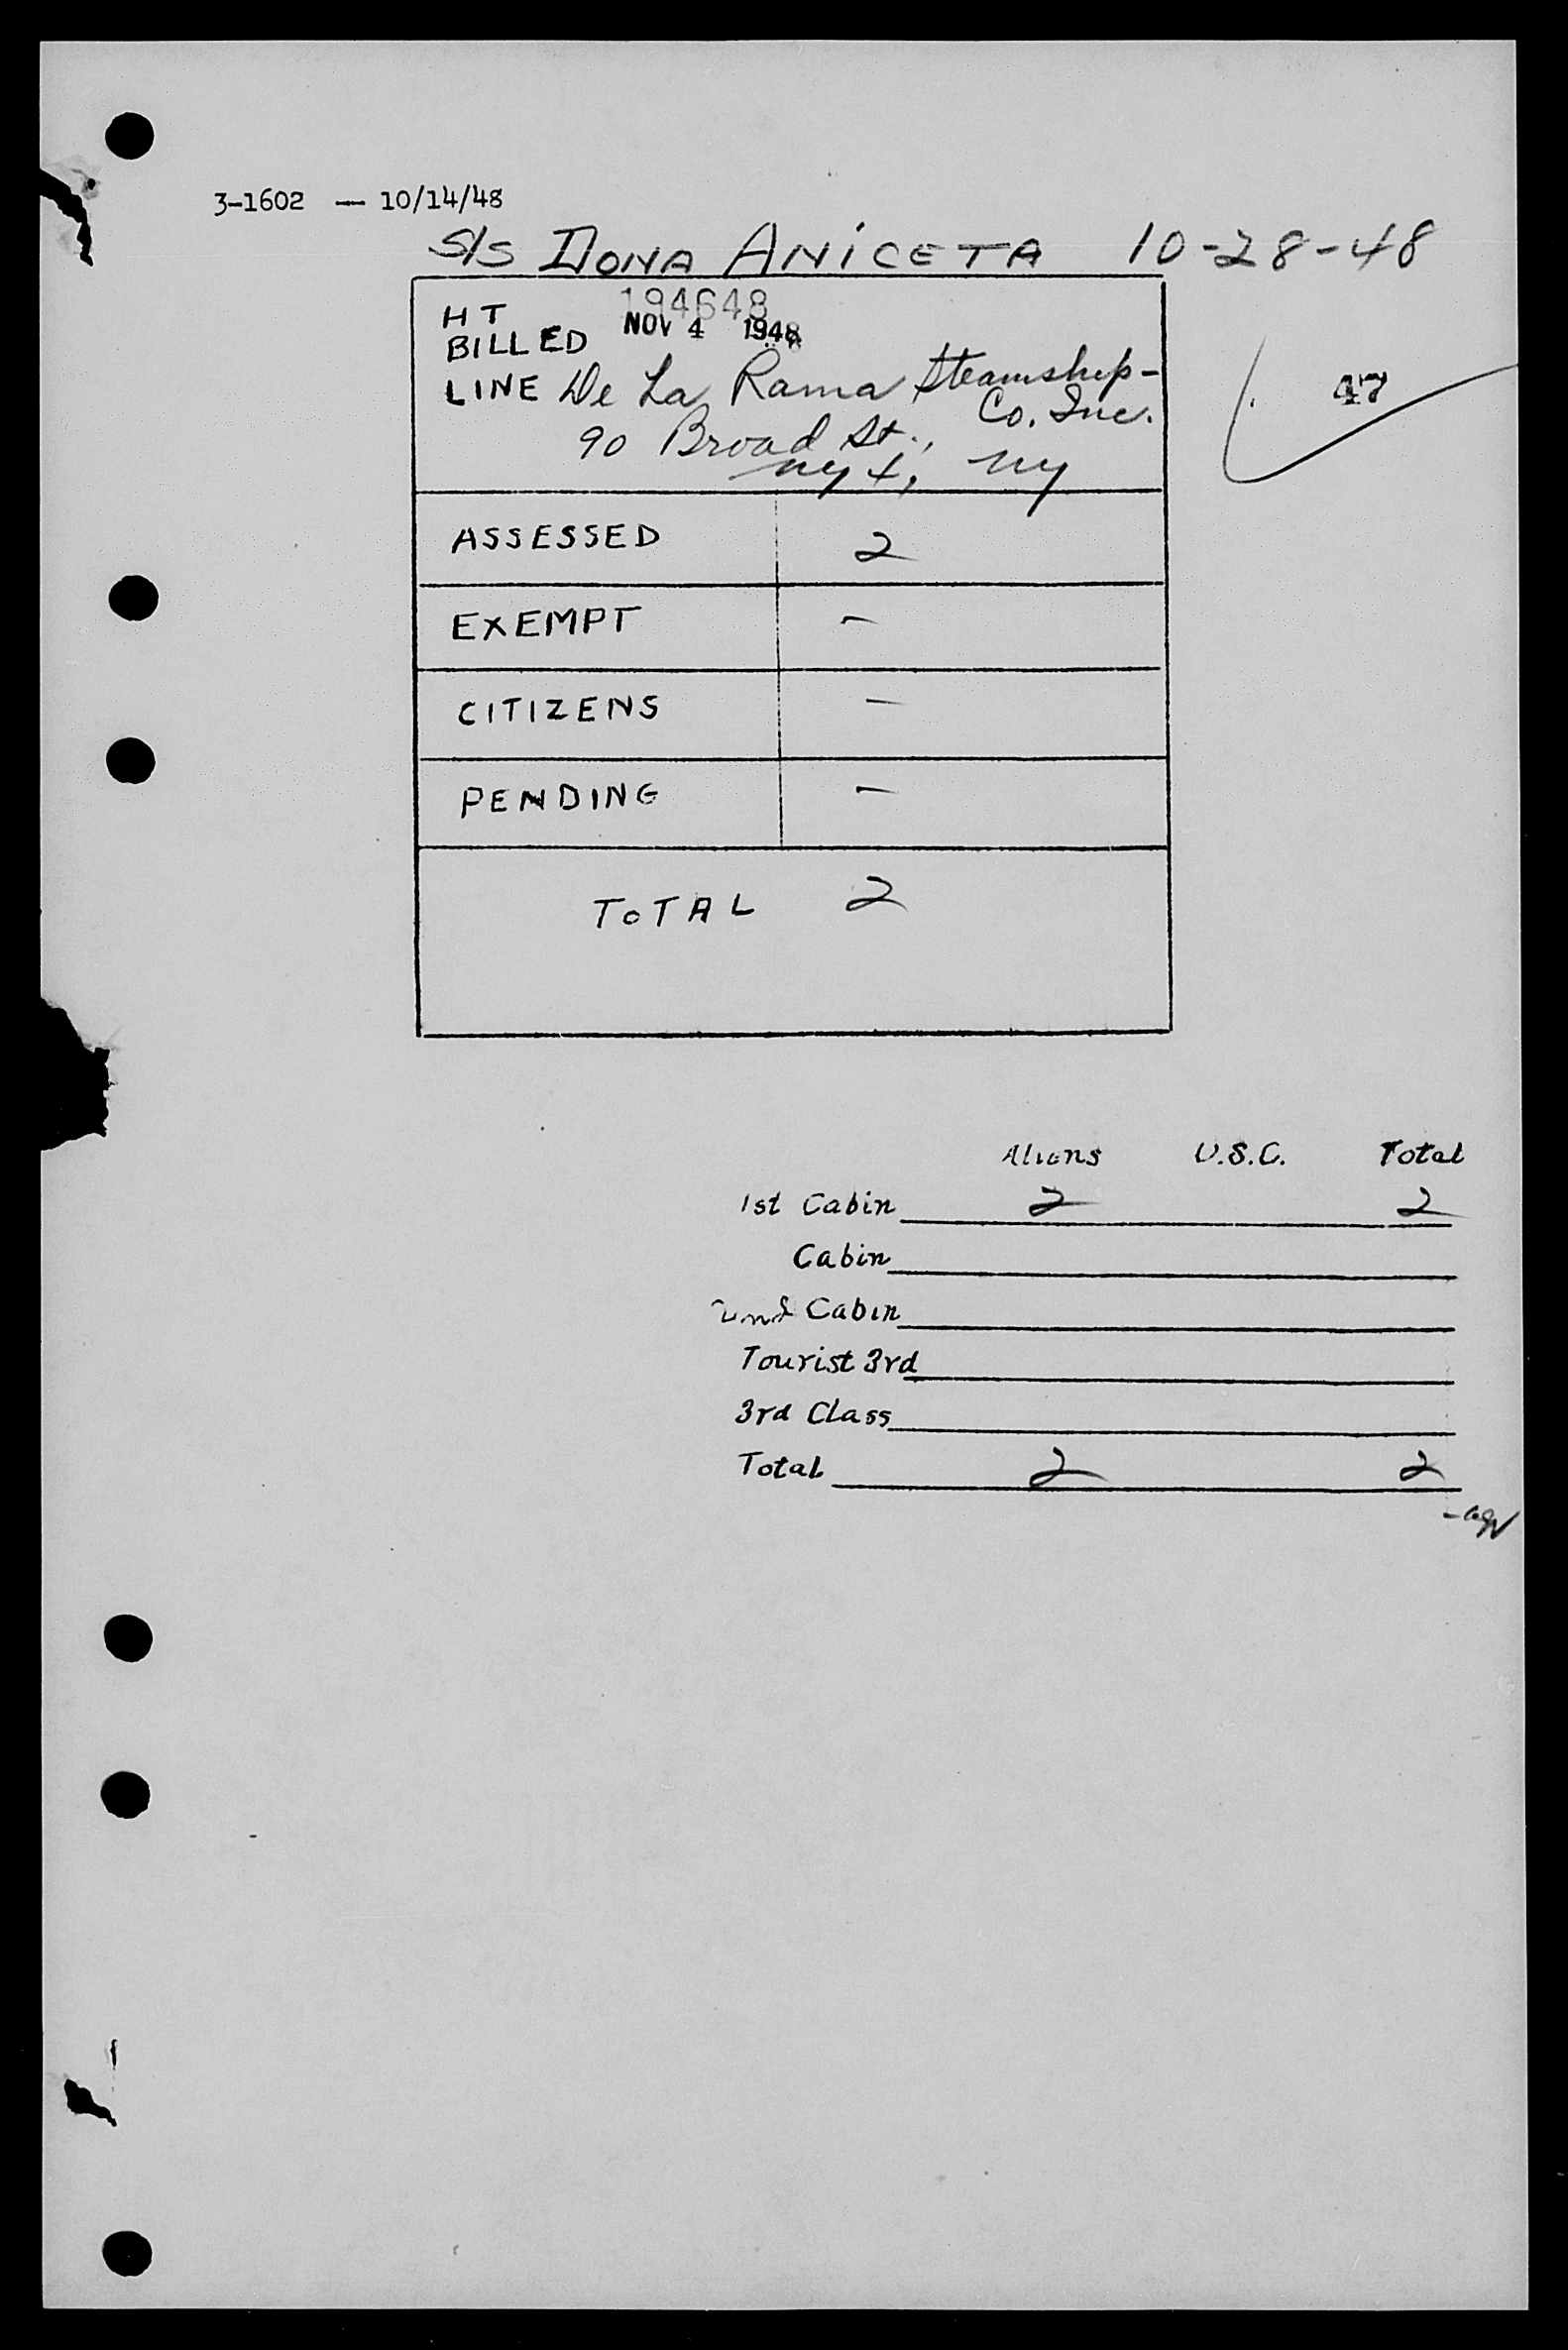 3-1602 — 10/14/48
S/S DONA ANICETA 10-28-48
HT 194648
BILLED NOV 4 1948
LINE De La Rama Steamship-
Co. Inc.
90 Broad St.,
ny 4, ny
47
ASSESSED 2
EXEMPT –
CITIZENS –
PENDING –
TOTAL 2
Aliens U.S.C. Total
1st Cabin 2 2
Cabin
2nd Cabin
Tourist 3rd
3rd Class
Total 2 2